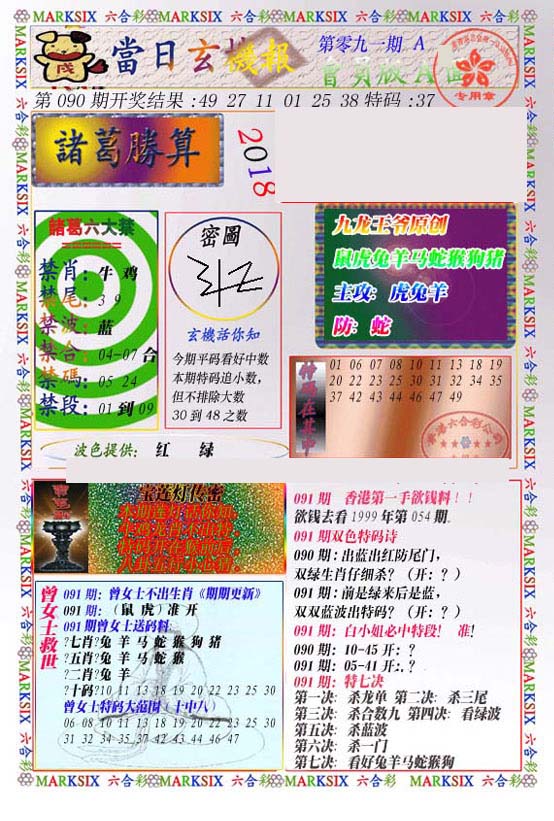 MARKSIX 六合彩 MARKSIX 六合彩 MARKSIX 六合彩 MARKSIX 六合彩 MARKSIX
當日玄機報
第零九一期 A
會員版A面
专用章
第 090 期开奖结果 :49 27 11 01 25 38 特码 :37
諸葛勝算
2018
諸葛六大禁
禁肖: 牛 鸡
禁尾: 3 9
禁波: 蓝
禁合: 04-07 合
禁碼: 05 24
禁段: 01 到 09
密圖
玄機話你知
今期平码看好中数
本期特码追小数,
但不排除大数
30 到 48 之数
九龙王爷原创
鼠虎兔羊马蛇猴狗猪
主攻: 虎兔羊
防: 蛇
特碼在其中
01 06 07 08 10 11 13 18 19
20 22 23 25 30 31 32 34 35
37 42 43 44 46 47 49
波色提供: 红 绿
宝莲灯传密
091 期 香港第一手欲钱料!!
欲钱去看 1999 年第 054 期.
091 期双色特码诗
090 期:出蓝出红防尾门,
双绿生肖仔细杀? (开: ? )
091 期:前是绿来后是蓝,
双双蓝波出特码? (开: ? )
091 期: 白小姐必中特段! 准!
090 期: 10-45 开: ?
091 期: 05-41 开:.?
091 期: 特七决
第一决: 杀龙单 第二决: 杀三尾
第三决: 杀合数九 第四决: 看绿波
第五决: 杀蓝波
第六决: 杀一门
第七决: 看好兔羊马蛇猴狗
曾女士救世
091 期: 曾女士不出生肖《期期更新》
091 期: (鼠 虎) 准 开
091 期曾女士送码料:
?七肖?兔 羊 马 蛇 猴 狗 猪
?五肖?兔 羊 马 蛇 猴
?二肖?兔 羊
?十码?10 11 13 18 19 20 22 23 25 30
曾女士特码大范围 (十中八)
06 08 10 11 13 18 19 20 22 23 25 30
31 32 34 35 37 42 43 44 46 47
MARKSIX 六合彩 MARKSIX 六合彩 MARKSIX 六合彩 MARKSIX 六合彩 MARKSIX